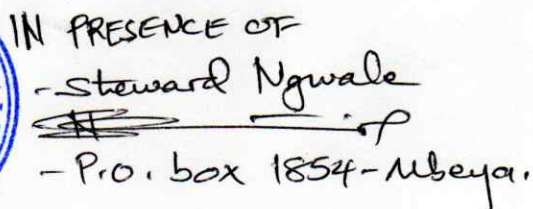 IN PRESENCE OF
- Steward Ngwale
- P.O. box 1854 - Mbeya.